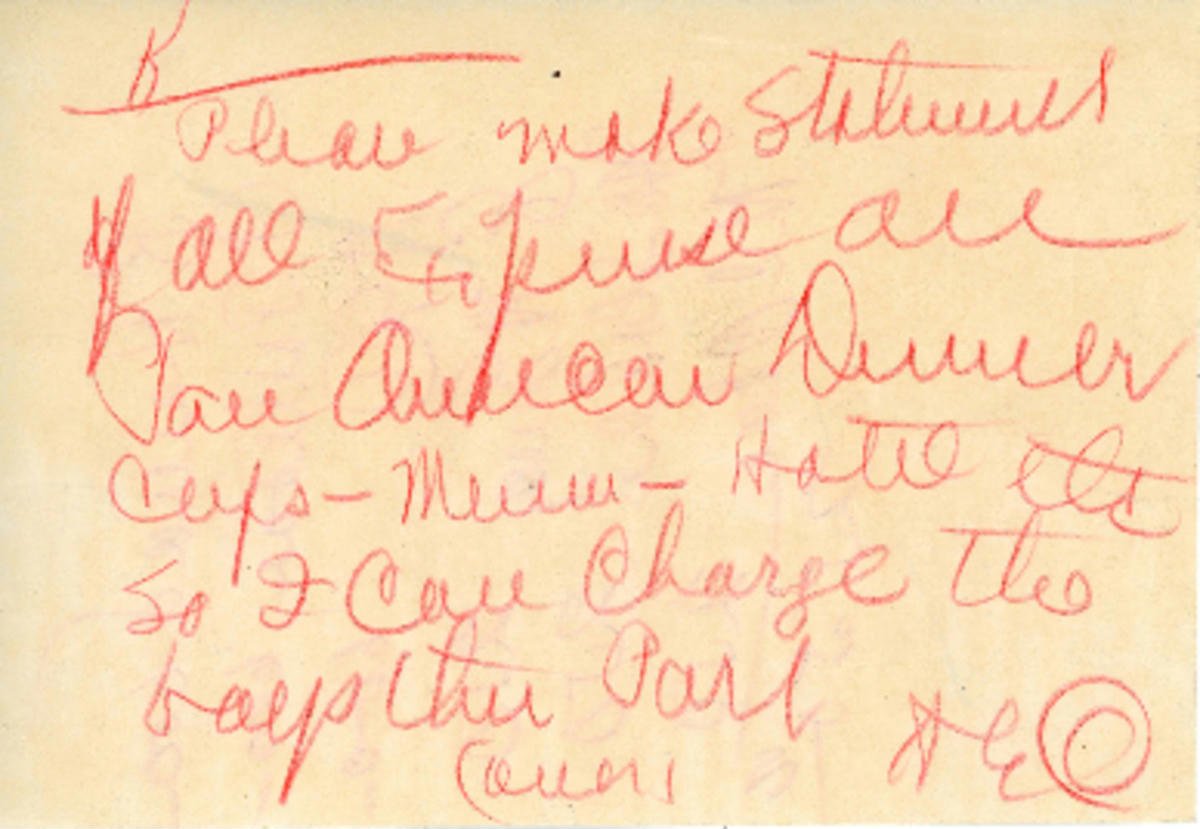 K
Please make Statement
of all Expense on
Pan American Dinner
Cups - Menu - Hotel etc
So I Can Charge the
boys their Part
(over)